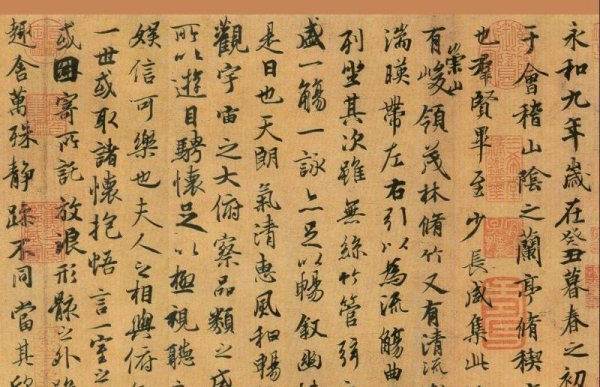 永和九年歲在癸丑暮春之初
于會稽山陰之蘭亭脩稧
也羣賢畢至少長咸集此
有崇山峻領茂林脩竹又有清流
湍暎帶左右引以為流觴曲
列坐其次雖無絲竹管弦
盛一觴一詠亦足以暢叙幽
是日也天朗氣清惠風和暢
觀宇宙之大俯察品類之盛
所以遊目騁懷足以極視聽之
娛信可樂也夫人之相與俯
一世或取諸懷抱悟言一室之
或因寄所託放浪形骸之外
趣舍萬殊静躁不同當其欣